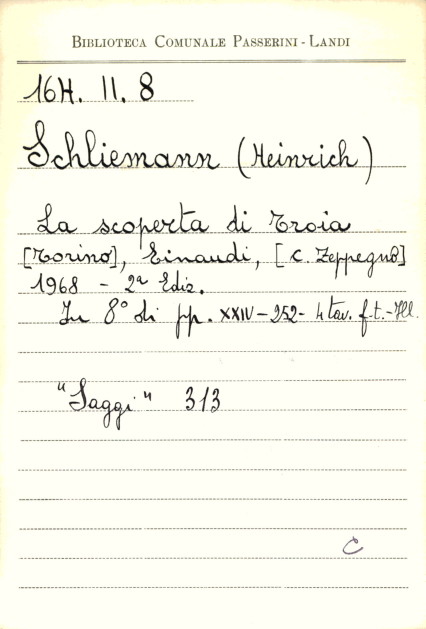 BIBLIOTECA COMUNALE PASSERINI - LANDI
16H. II. 8
Schliemann (Heinrich)
La scoperta di Troia
[Torino], Einaudi, [C. Zeppegno]
1968 - 2ª Ediz.
In 8° di pp. XXIV - 252 - 4 tav. f. t. - Ill.
"Saggi" 313
C